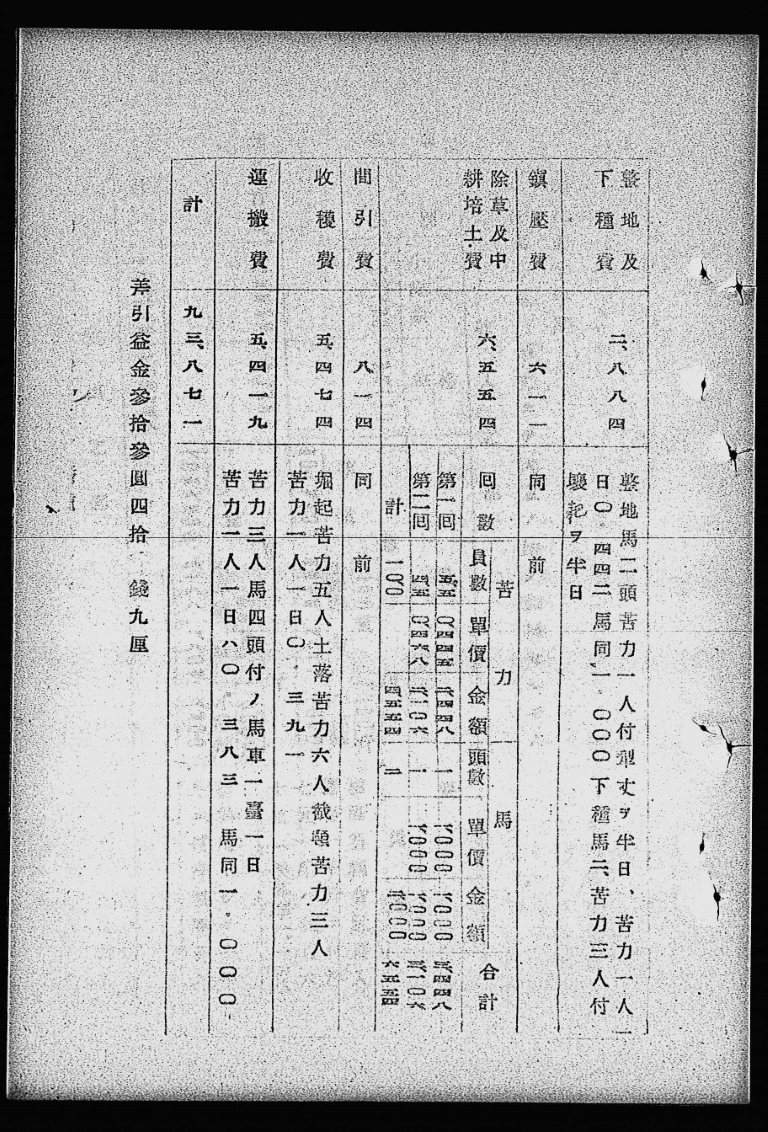 整地及
下種費
二、八八四
整地馬二頭苦力一人付犁丈ヲ半日、苦力一人一
日〇.四四二馬同一.〇〇〇下種馬二、苦力三人付
ヲ半日
鎭壓費
六一一
同前
除草及中
耕培土費
六、五五四
回數
苦力
馬
合計
員數 單價 金額 頭數 單價 金額
第一回 五五 〇四四五 二四四八 一 一〇〇〇 一〇〇〇 三四四八
第二回 四五 〇四六八 二一〇六 一 一〇〇〇 一〇〇〇 三一〇六
計 一〇〇 四五五四 二 二〇〇〇 六五五四
間引費
八一四
同前
收穫費
五、四七四
堀起苦力五人土落苦力六人截頭苦力三人
苦力一人一日〇.三九一
運搬費
五、四一九
苦力三人馬四頭付ノ馬車一臺一日
苦力一人一日〇.三八三 馬同一.〇〇〇
計
九三、八七一
差引益金參拾參圓四拾 錢九厘